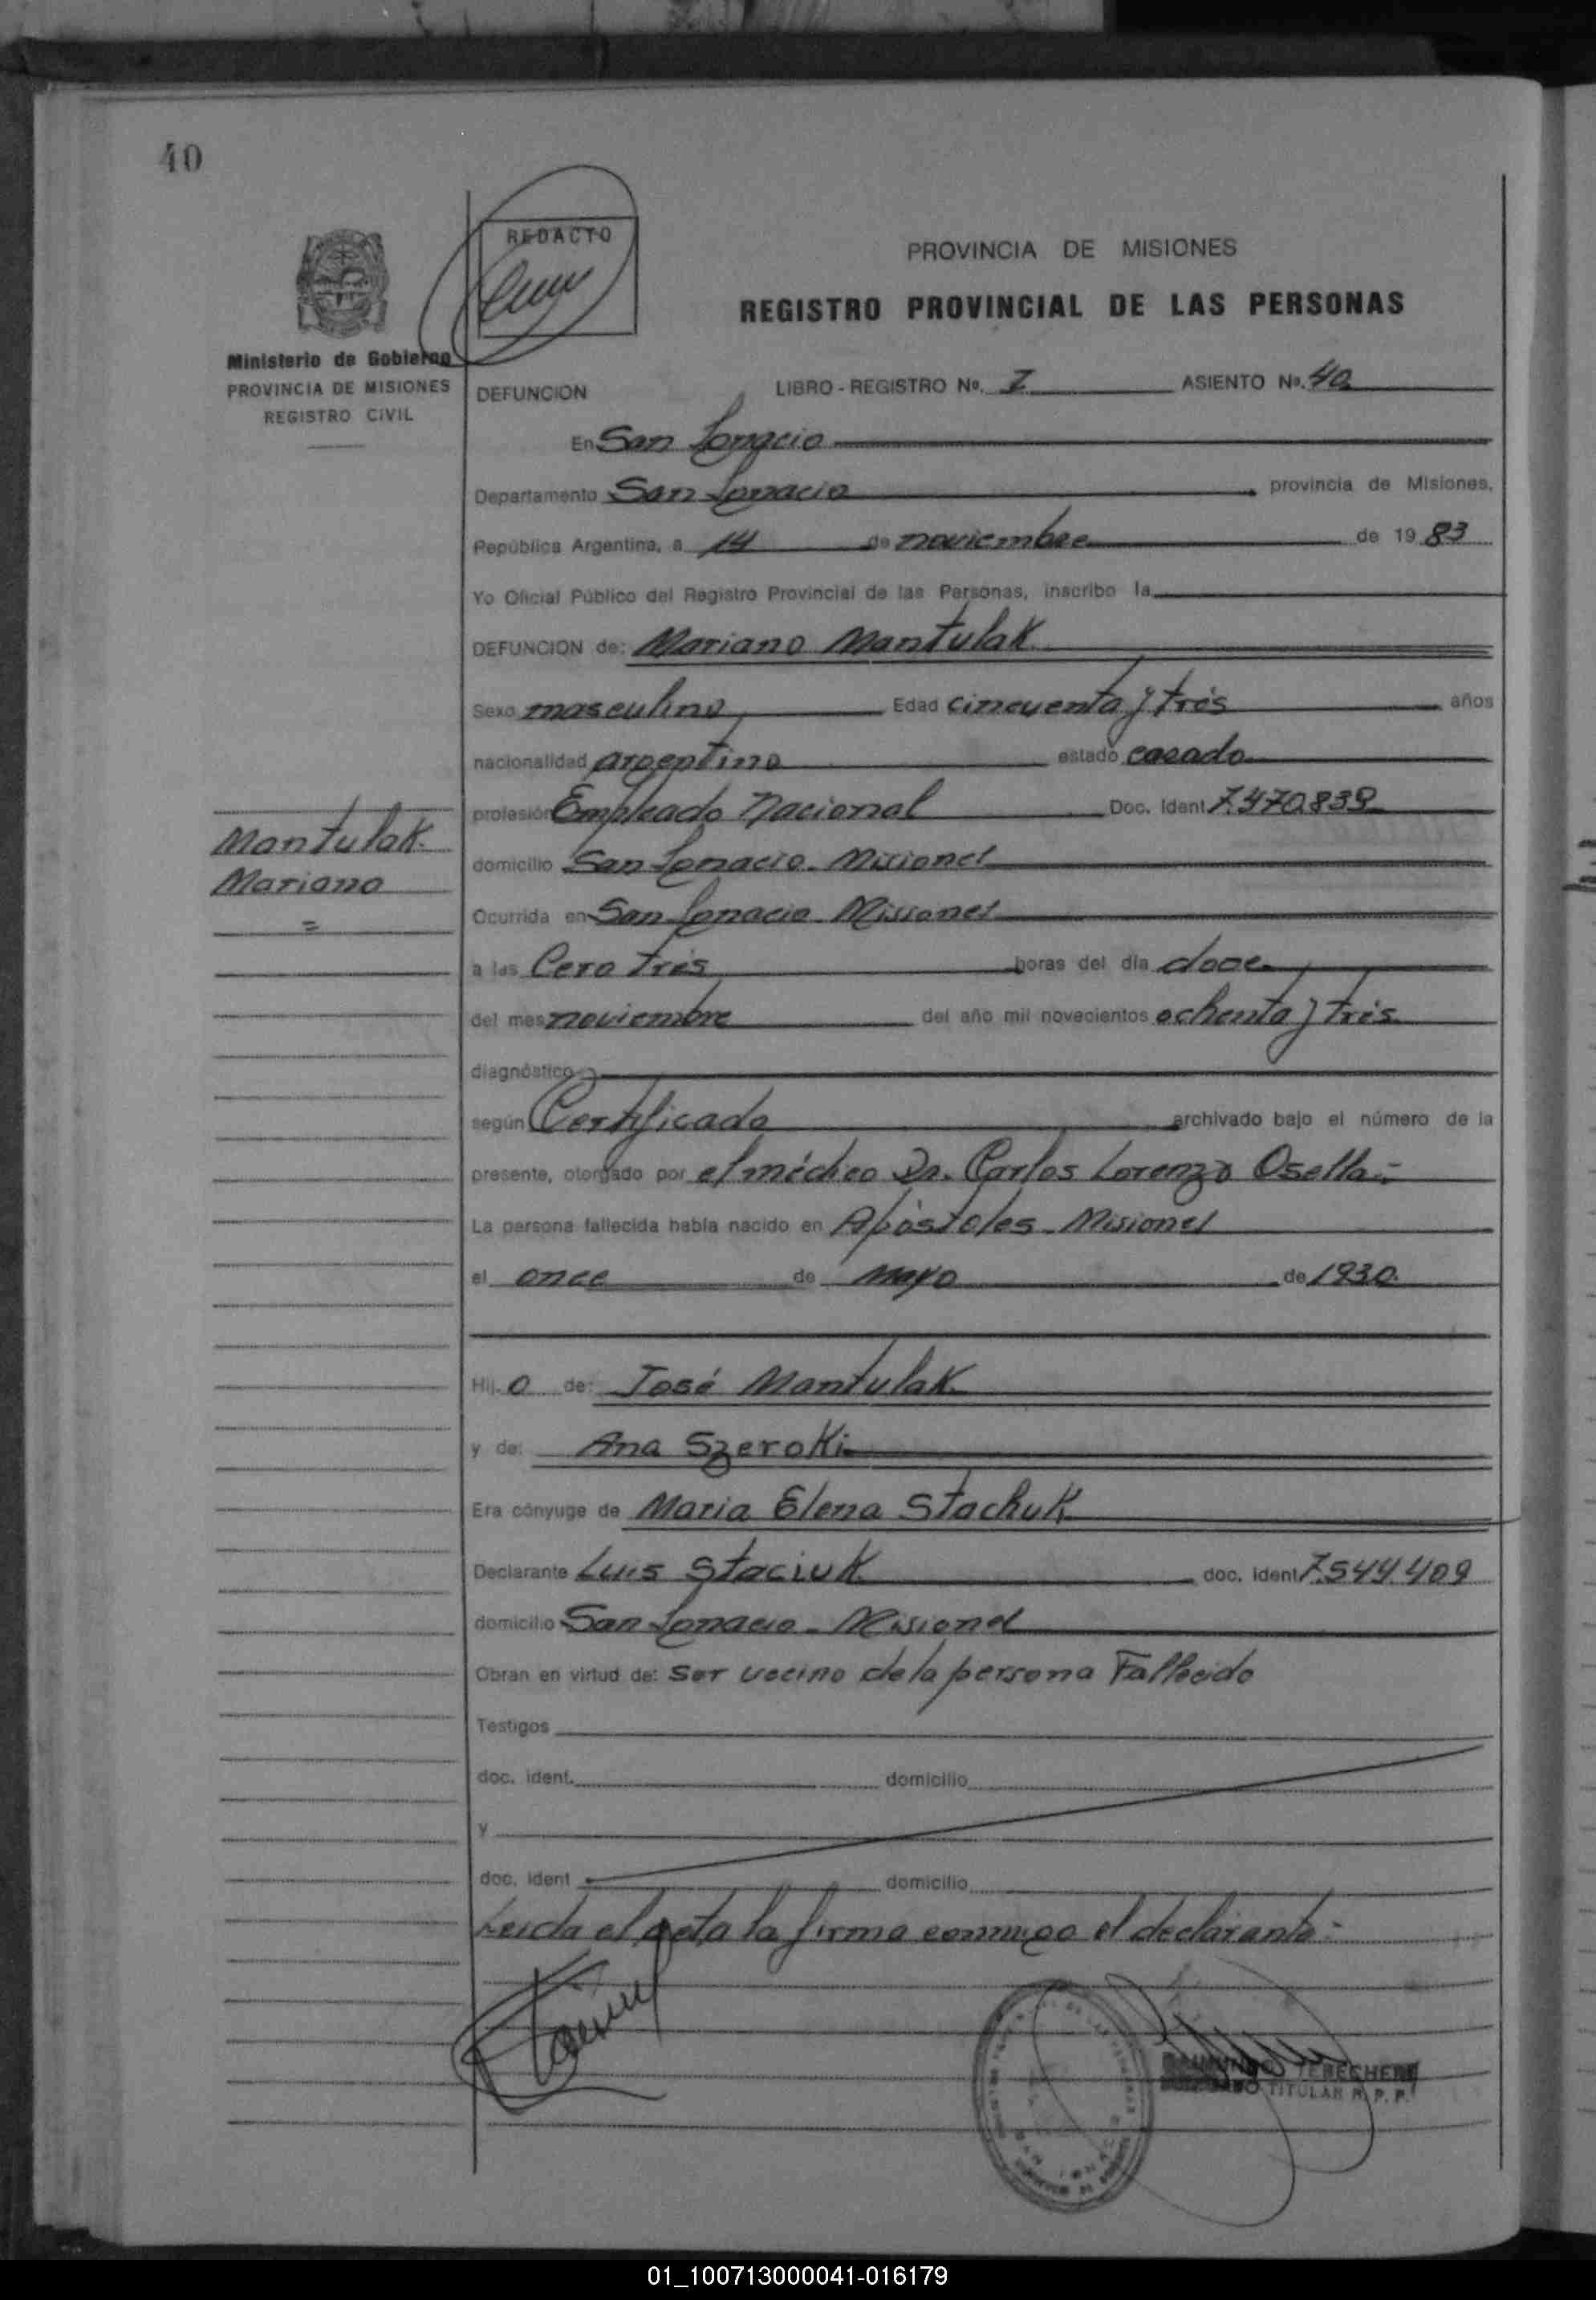 40
REDACTO
PROVINCIA DE MISIONES
REGISTRO PROVINCIAL DE LAS PERSONAS
Ministerio de Gobierno
PROVINCIA DE MISIONES
REGISTRO CIVIL
DEFUNCION LIBRO - REGISTRO No. I ASIENTO No. 40
En San Ignacio
Departamento San Ignacio provincia de Misiones,
República Argentina, a 14 de noviembre de 1983
Yo Oficial Público del Registro Provincial de las Personas, inscribo la
DEFUNCION de: Mariano Mantulak
Sexo masculino Edad cincuenta y trés años
nacionalidad argentino estado casado
profesión Empleado Nacional Doc. Ident. 7.470.839
Mantulak
Mariano
=
domicilio San Ignacio - Misiones
Ocurrida en San Ignacio Misiones
a las Cero trés horas del día doce
del mes noviembre del año mil novecientos ochenta y trés
diagnóstico
según Certificado archivado bajo el número de la
presente, otorgado por el médico Dr. Carlos Lorenzo Osella.-
La persona fallecida había nacido en Apóstoles - Misiones
el once de Mayo de 1930.
Hij o de: José Mantulak
y de: Ana Szeroki
Era cónyuge de Maria Elena Stachuk
Declarante Luis Staciuk doc. ident. 7.544.409
domicilio San Ignacio - Misiones
Obran en virtud de: ser vecino de la persona Fallecido
Testigos
doc. ident. domicilio
y
doc. ident domicilio
Leida el acta la firma conmigo el declarante.-
TEBECHERI
TITULAR R. P. P.
01_100713000041-016179